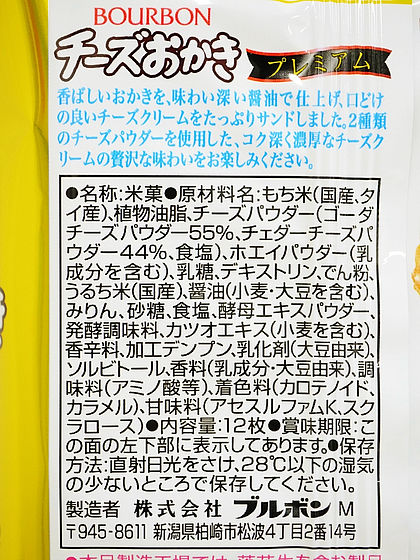 BOURBON
チーズおかき
プレミアム
香ばしいおかきを、味わい深い醤油で仕上げ、口どけ
の良いチーズクリームをたっぷりサンドしました。2種類
のチーズパウダーを使用した、コク深く濃厚なチーズク
リームの贅沢な味わいをお楽しみください。
●名称:米菓●原材料名:もち米(国産、タ
イ産)、植物油脂、チーズパウダー(ゴーダ
チーズパウダー55%、チェダーチーズパ
ウダー44%、食塩)、ホエイパウダー(乳
成分を含む)、乳糖、デキストリン、でん粉、
うるち米(国産)、醤油(小麦・大豆を含む)、
みりん、砂糖、食塩、酵母エキスパウダー、
発酵調味料、カツオエキス(小麦を含む)、
香辛料、加工デンプン、乳化剤(大豆由来)、
ソルビトール、香料(乳成分・大豆由来)、調
味料(アミノ酸等)、着色料(カロテノイド、
カラメル)、甘味料(アセスルファムK、スク
ラロース)●内容量:12枚●賞味期限:こ
の面の左下部に表示してあります。●保存
方法:直射日光をさけ、28℃以下の湿気
の少ないところで保存してください。
製造者 株式会社 ブルボン M
〒945-8611 新潟県柏崎市松波4丁目2番14号